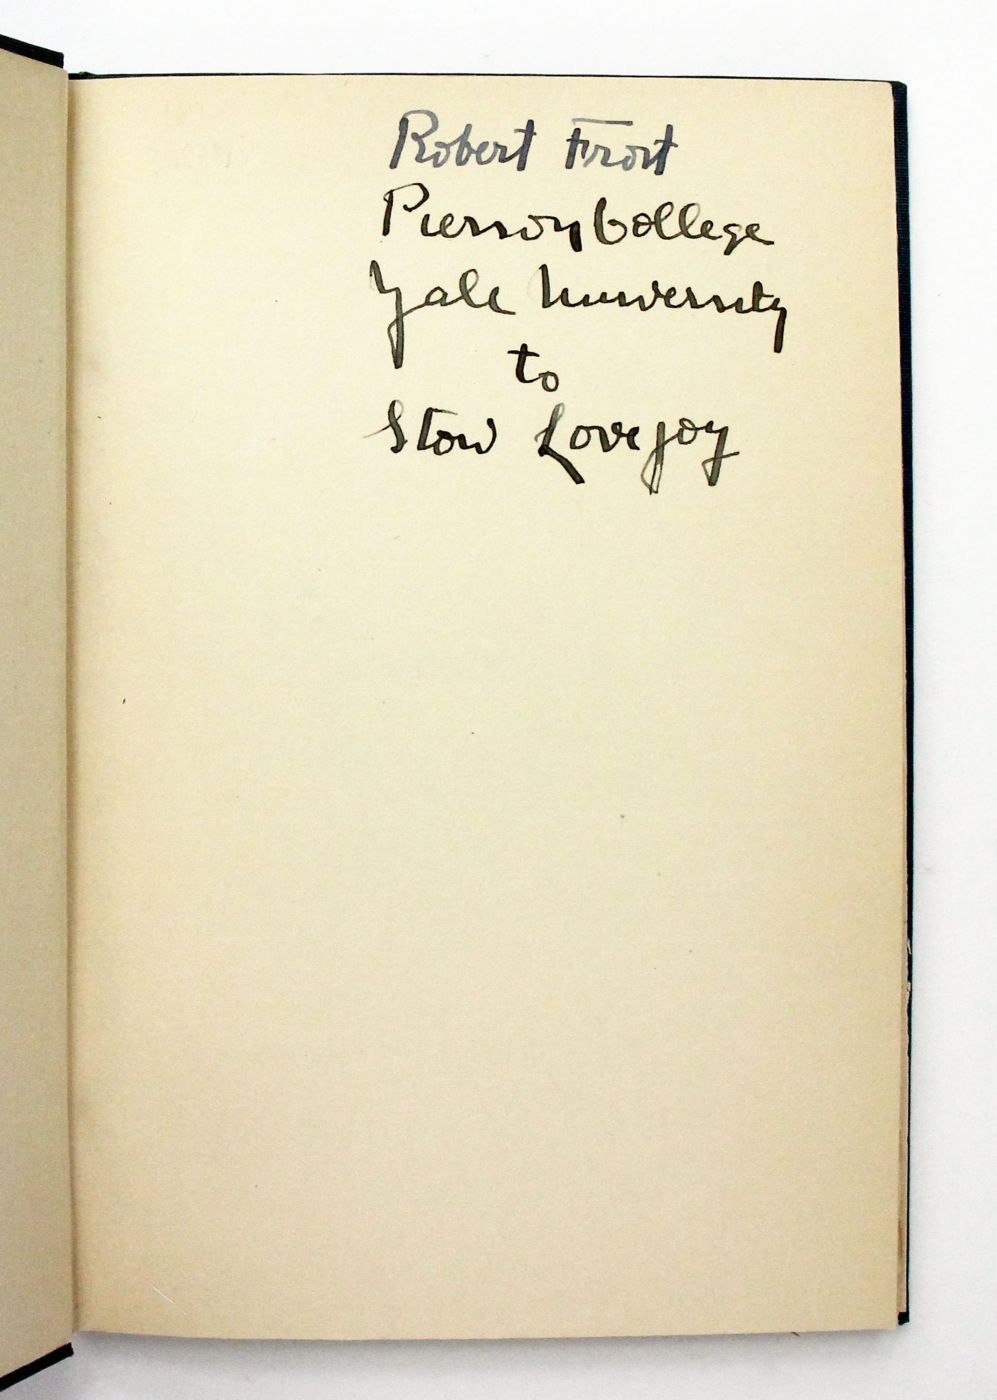 Robert Frost
Pierson College
Yale University
to
Stow Lovejoy